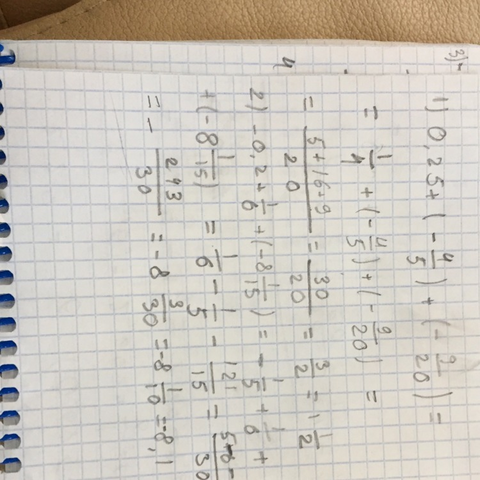 3)-
1) 0,25 + (- 4/5) + (- 9/20) =
= 1/4 + (- 4/5) + (- 9/20) =
= 5+16+9/20 = 30/20 = 3/2 = 1 1/2
2) -0,2 + 1/6 + (-8 1/15) = - 1/5 + 1/6 +
+ (-8 1/15) = 1/6 - 1/5 - 121/15 = 5-6-/30
= - 243/30 = -8 3/30 = -8 1/10 = -8,1